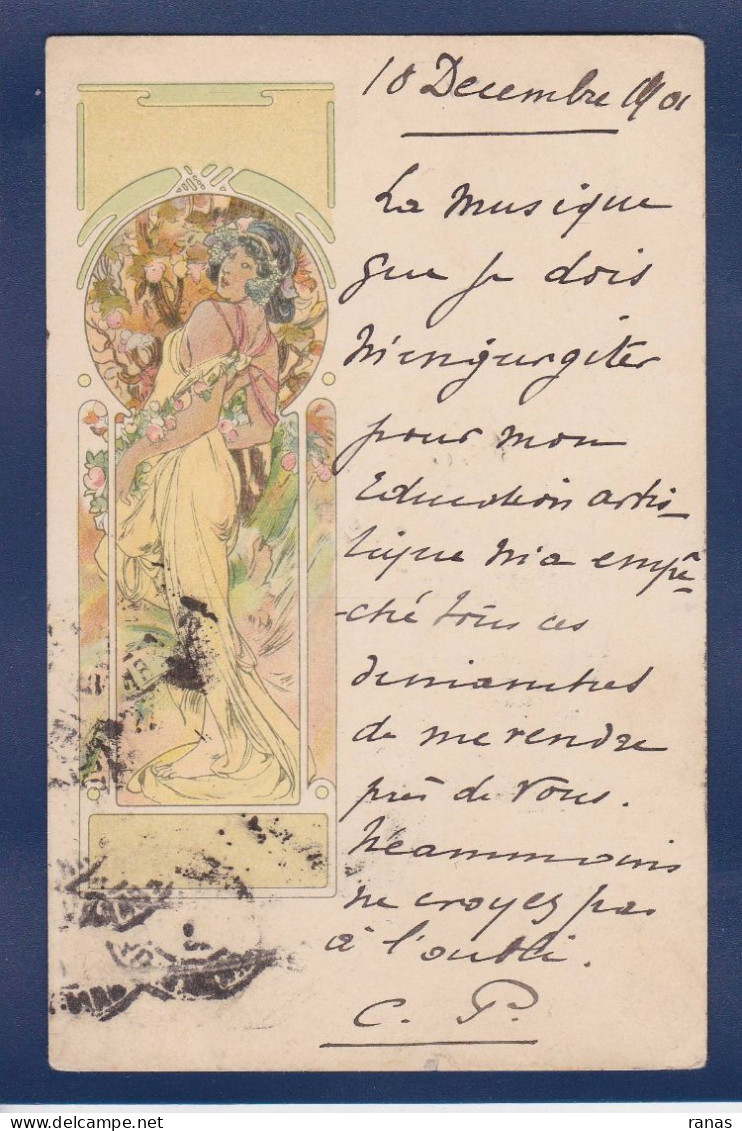 18 Decembre 1901
La musique
que je dois
m'engurgiter
pour mon
Education artis-
tique m'a empê-
-ché tous ces
dimanches
de me rendre
près de vous.
Néammoins
ne croyez pas
à l'oubli.
C. P.
ranas